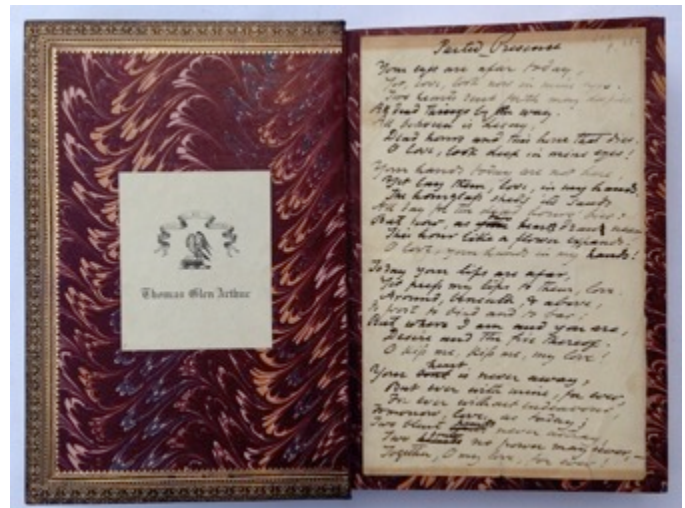 Thomas Glen Arthur
Parted Presence
Your eyes are afar today,
Yet, love, look now in mine eyes.
Two hearts sent forth may despise
All dead things by the way.
All between is decay,
Dead hours and this hour that dies.
O love, look deep in mine eyes!
Your hands today are not here,
Yet lay them, love, in my hands.
The hourglass sheds its sands
All day for the dead hours' bier;
But now, as two hearts draw near
This hour like a flower expands.
O love, your hands in my hands!
Today your lips are afar,
Yet press my lips to them, love.
Around, beneath, & above,
Is frost to bind and to bar;
But where I am and you are,
Desire and the fire thereof.
O kiss me, kiss me, my love!
Your heart is never away,
But ever with mine, for ever,
For ever without endeavour,
Tomorrow, love, as today;
Two blent hearts never astray,
Two no power may sever,—
Together, O my love, for ever!